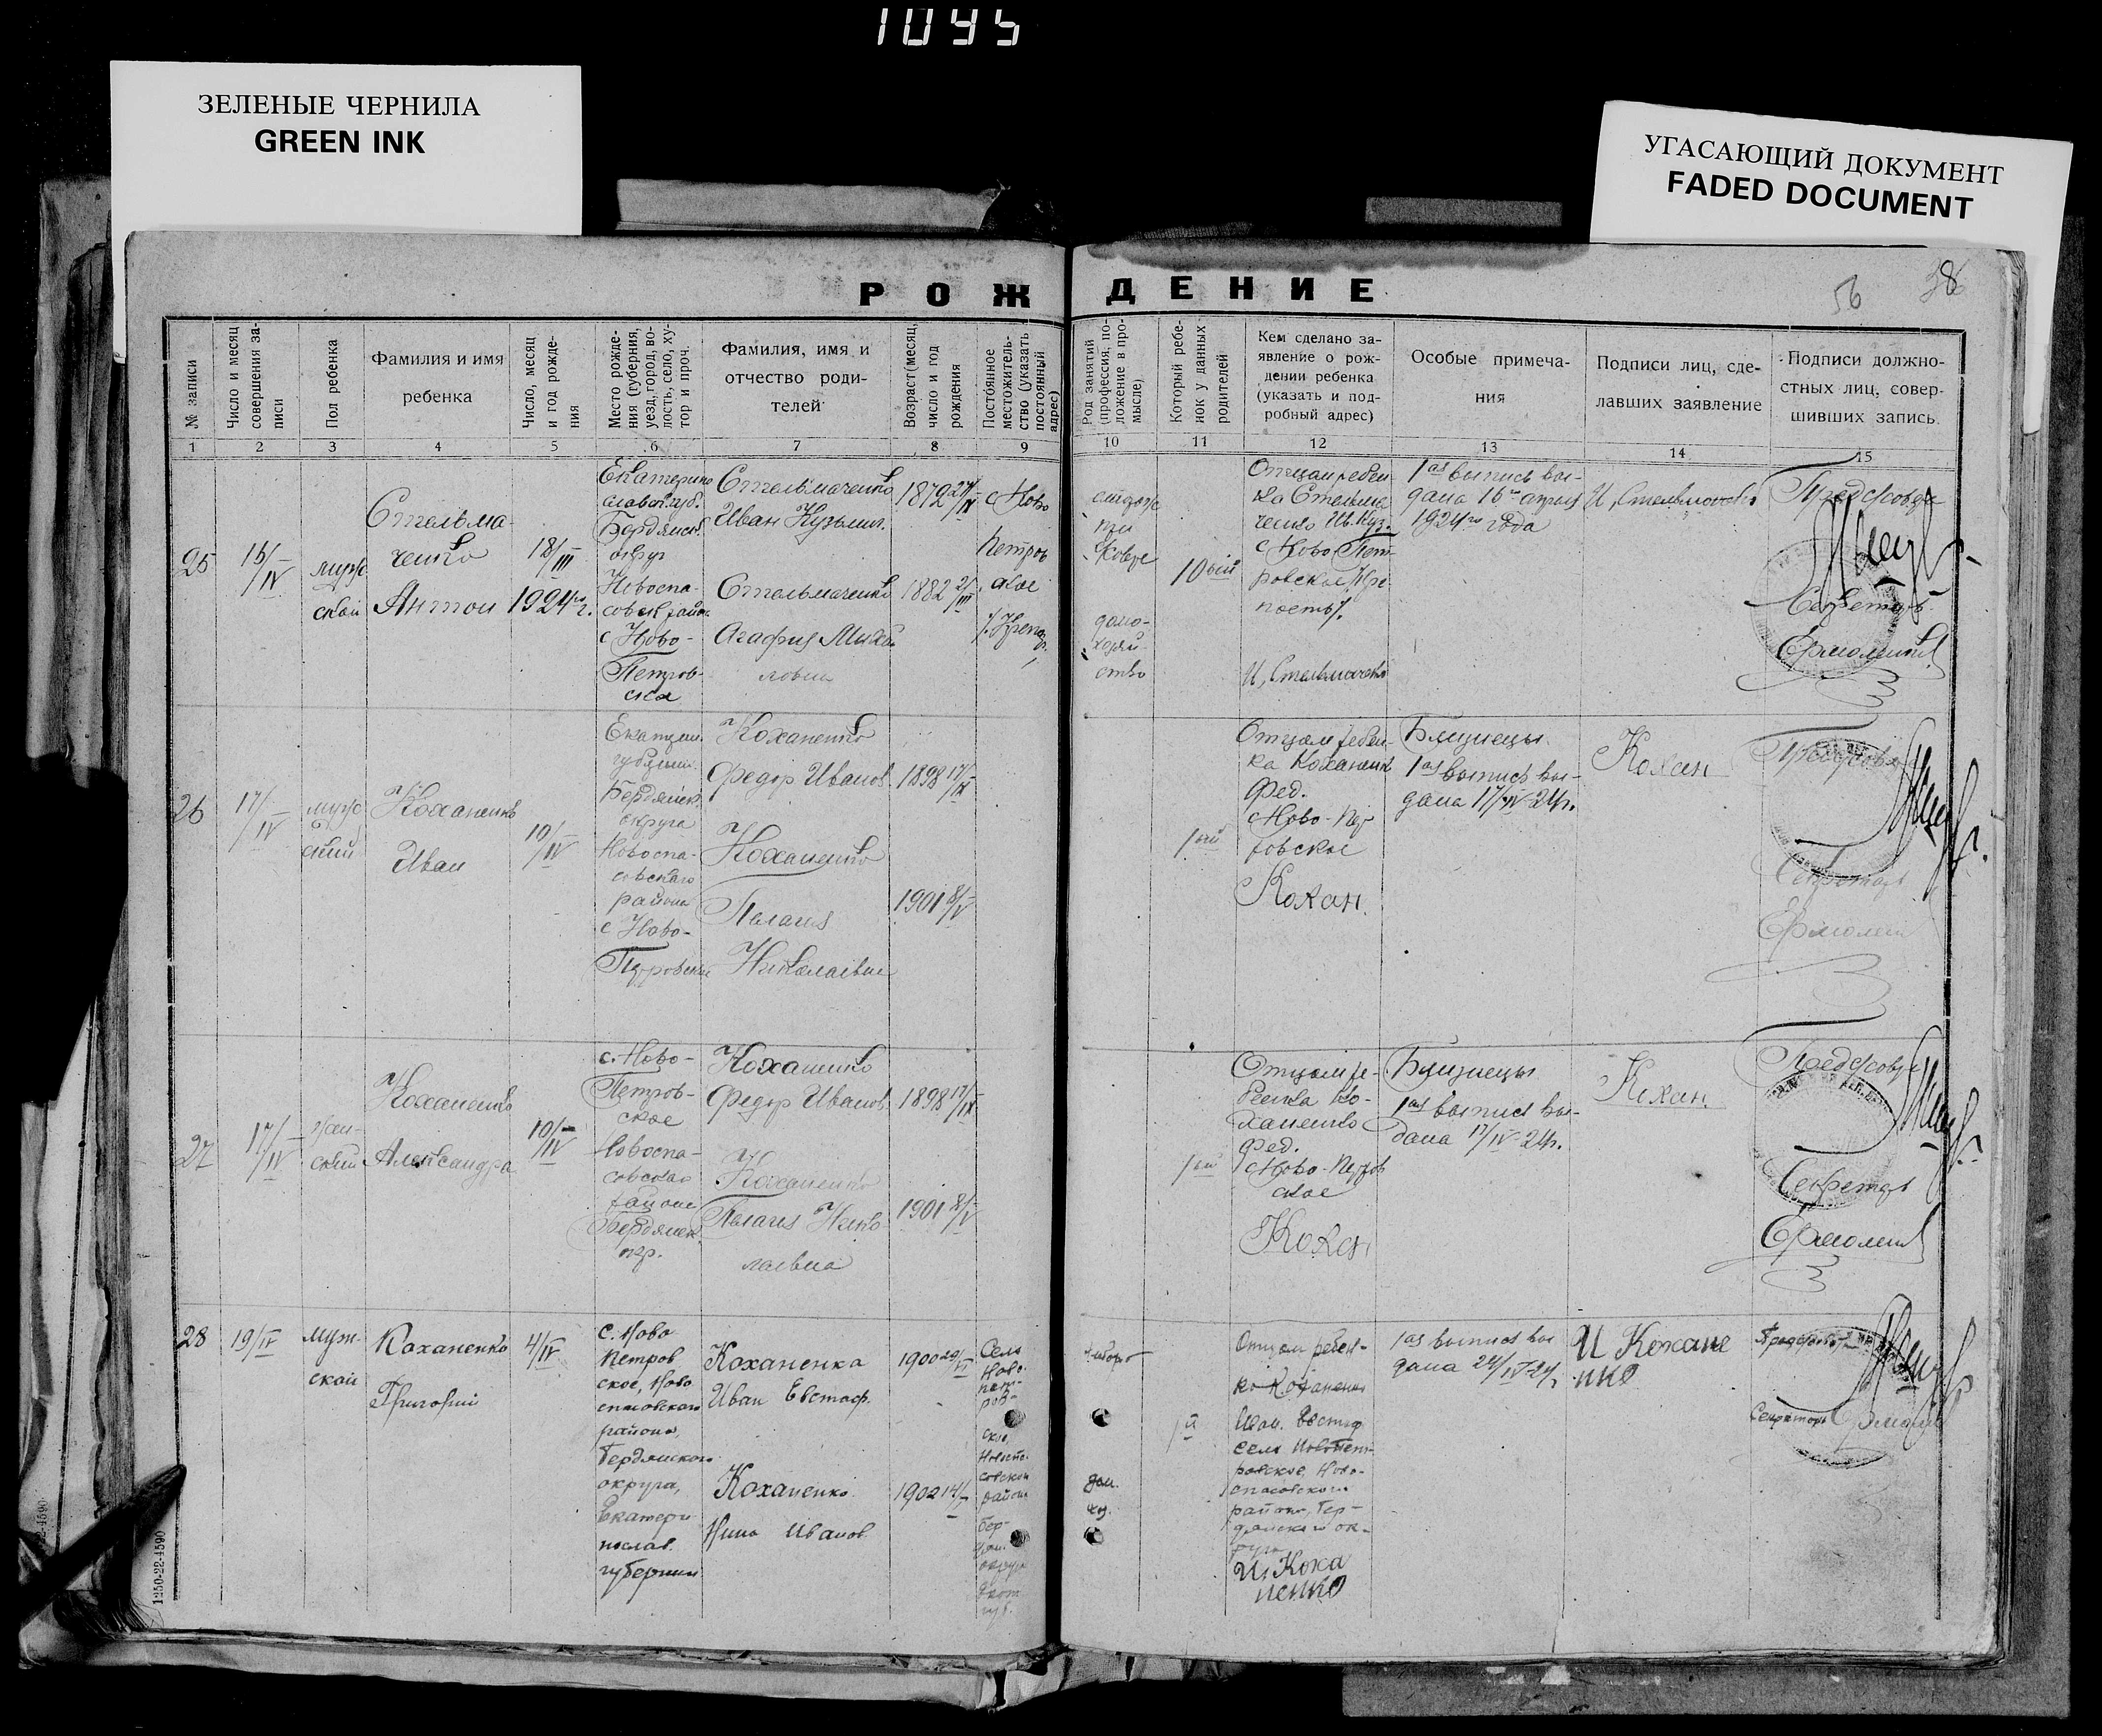 1095
ЗЕЛЕНЫЕ ЧЕРНИЛА
GREEN INK
УГАСАЮЩИЙ ДОКУМЕНТ
FADED DOCUMENT
РОЖДЕНИЕ
56
38
№ записи
Число и месяц совершения за-
писи
Пол ребенка
Фамилия и имя
ребенка
Число, месяц
и год рожде-
ния
Место рожде-
ния (губерния,
уезд, город, во-
лость, село, ху-
тор и проч.
Фамилия, имя и
отчество роди-
телей
Возраст (месяц,
число и год
рождения
Постоянное
местожитель-
ство (указать
постоянный
адрес)
Род занятий
(профессия, по-
ложение в про-
мысле)
Который ребе-
нок у данных
родителей
Кем сделано за-
явление о рож-
дении ребенка
(указать и под-
робный адрес)
Особые примеча-
ния
Подписи лиц, сде-
лавших заявление
Подписи должно-
стных лиц, совер-
шивших запись
1 2 3 4 5 6 7 8 9 10 11 12 13 14 15
25
16/IV
муж
ской
Стельма-
ченко
Антон
18/III
1924 г.
Екатерино
славск губ.
Бердянск.
округ
Новоспа-
совск район
с Ново-
Петров-
ска
Стельмаченко
Иван Кузьмич.
Стельмаченко
Агафия Михай
ловна
1879
1882 2/III
с Ново
петров
ское
10ый
домо-
хозяй
ство
Отцом ребен
ка Стельма
ченко Ив. Куз.
с Ново Пет-
ровское /Кре
пость/.
И, Стельмаченко
1ая выпись вы-
дана 16го апреля
1924го года
И, Стельмаченко
Секретарь
26
17/IV
муж
ской
Коханенко
Иван
10/IV
губерни.
Бердянск.
округа
Новоспа-
совского
района
с Ново-
Петровское
Коханенко
Федор Иванов.
Коханенко
Пелагия
Николаевна
1898 17/IX
1901 8/V
1ый
Отцом ребен-
ка Коханенк
Фед.
с Ново-Пет
ровское
Кохан.
Близнецы.
1ая выпись вы-
дана 17/IV-24г.
Кохан
Секретарь
27
17/IV
жен-
ский
Коханенко
Александра
10/IV
с. Ново-
Петров-
ское
Новоспа-
совского
района
Бердянск.
окр.
Коханенко
Федор Иванов.
Коханенко
Пелагия Нико-
лаевна
1898 17/IX
1901 8/V
1ый
Отцом ре-
бенка Ко-
ханенко
Фед.
с Ново-Петров
ское
Кохан
Близнецы
1ая выпись вы-
дана 17/IV-24г.
Кохан.
Секретарь
28
19/IV
муж-
ской
Коханенко
Григорий
4/IV
с. Ново
Петров
ское, Ново
спасовского
района,
Бердянского
округа,
Екатери
нослав.
губернии
Коханенка
Иван Евстаф.
Коханенко
Нина Иванов.
1900
1902
Село
Ново-
пет-
ров-
ское,
Новоспа-
совского
района
Бер-
дян.
округа
Екат.
губ.
дом.
хоз.
Отцом ребен-
ка Коханенко
Иван. Евстаф
село Новопет-
ровское, Ново-
спасовского
района, Бер-
дянского ок-
руга
И, Коха
ненко
1ая выпись вы
дана 24/IV-24г.
И Кохане
нко
Секретарь
1250-22-4590